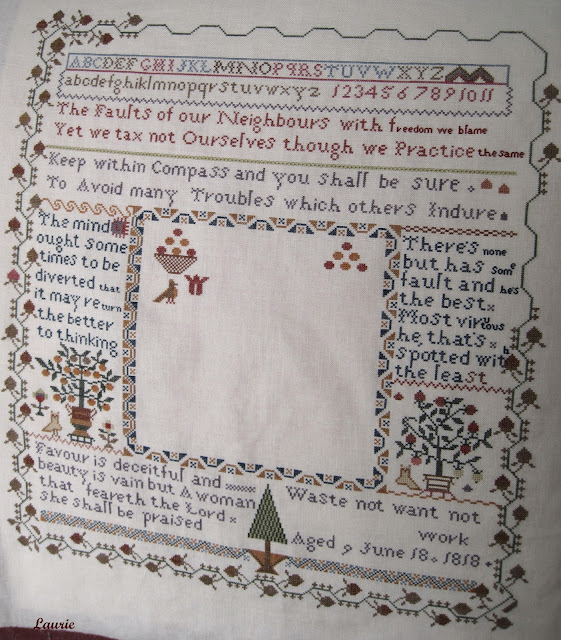 ABCDEFGHIJKLMNOPQRSTUVWXYZ
abcdefghijklmnopqrstuvwxyz 1234567891011
The Faults of our Neighbours with freedom we blame
Yet we tax not Ourselves though we Practice the same
Keep within Compass and you shall be sure
To Avoid many Troubles which others Indure
The mind
ought some
times to be
diverted that
it may return
the better
to thinking
There's none
but has som
fault and he's
the best
Most virtuous
he that's
spotted with
the least
Favour is deceitful and
beauty is vain but A woman
that feareth the Lord
she shall be praised
Waste not want not
work
Aged 9 June 18 1818
Laurie